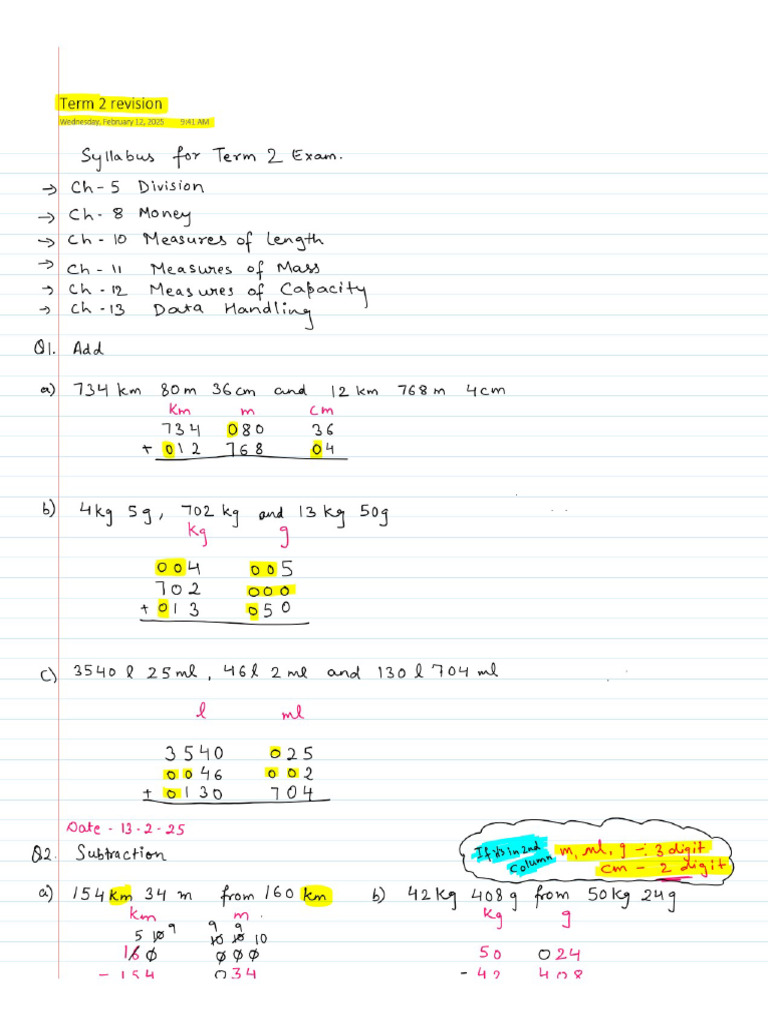 Term 2 revision
Wednesday, February 12, 2025 9:41 AM
Syllabus for Term 2 Exam.
→ Ch - 5 Division
→ Ch - 8 Money
→ Ch - 10 Measures of Length
→ Ch - 11 Measures of Mass
→ Ch - 12 Measures of Capacity
→ Ch - 13 Data Handling
Q1. Add
a) 734 km 80 m 36 cm and 12 km 768 m 4 cm
Km m cm
734 080 36
+ 012 768 04
b) 4kg 5g, 702 kg and 13 kg 50g
Kg g
004 005
702 000
+ 013 050
c) 3540 l 25 ml, 46 l 2 ml and 130 l 704 ml
l ml
3540 025
0046 002
+ 0130 704
Date - 13-2-25
Q2. Subtraction
If is in 2nd Column m, ml, g - 3 digit
cm - 2 digit
a) 154 km 34 m from 160 km
km m.
5 10 9 9 9
10 10 10
160 000
- 154 034
b) 42 Kg 408 g from 50 Kg 24 g
Kg g
50 024
- 42 408